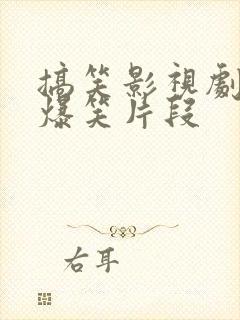 搞笑影視劇
爆笑片段
右耳